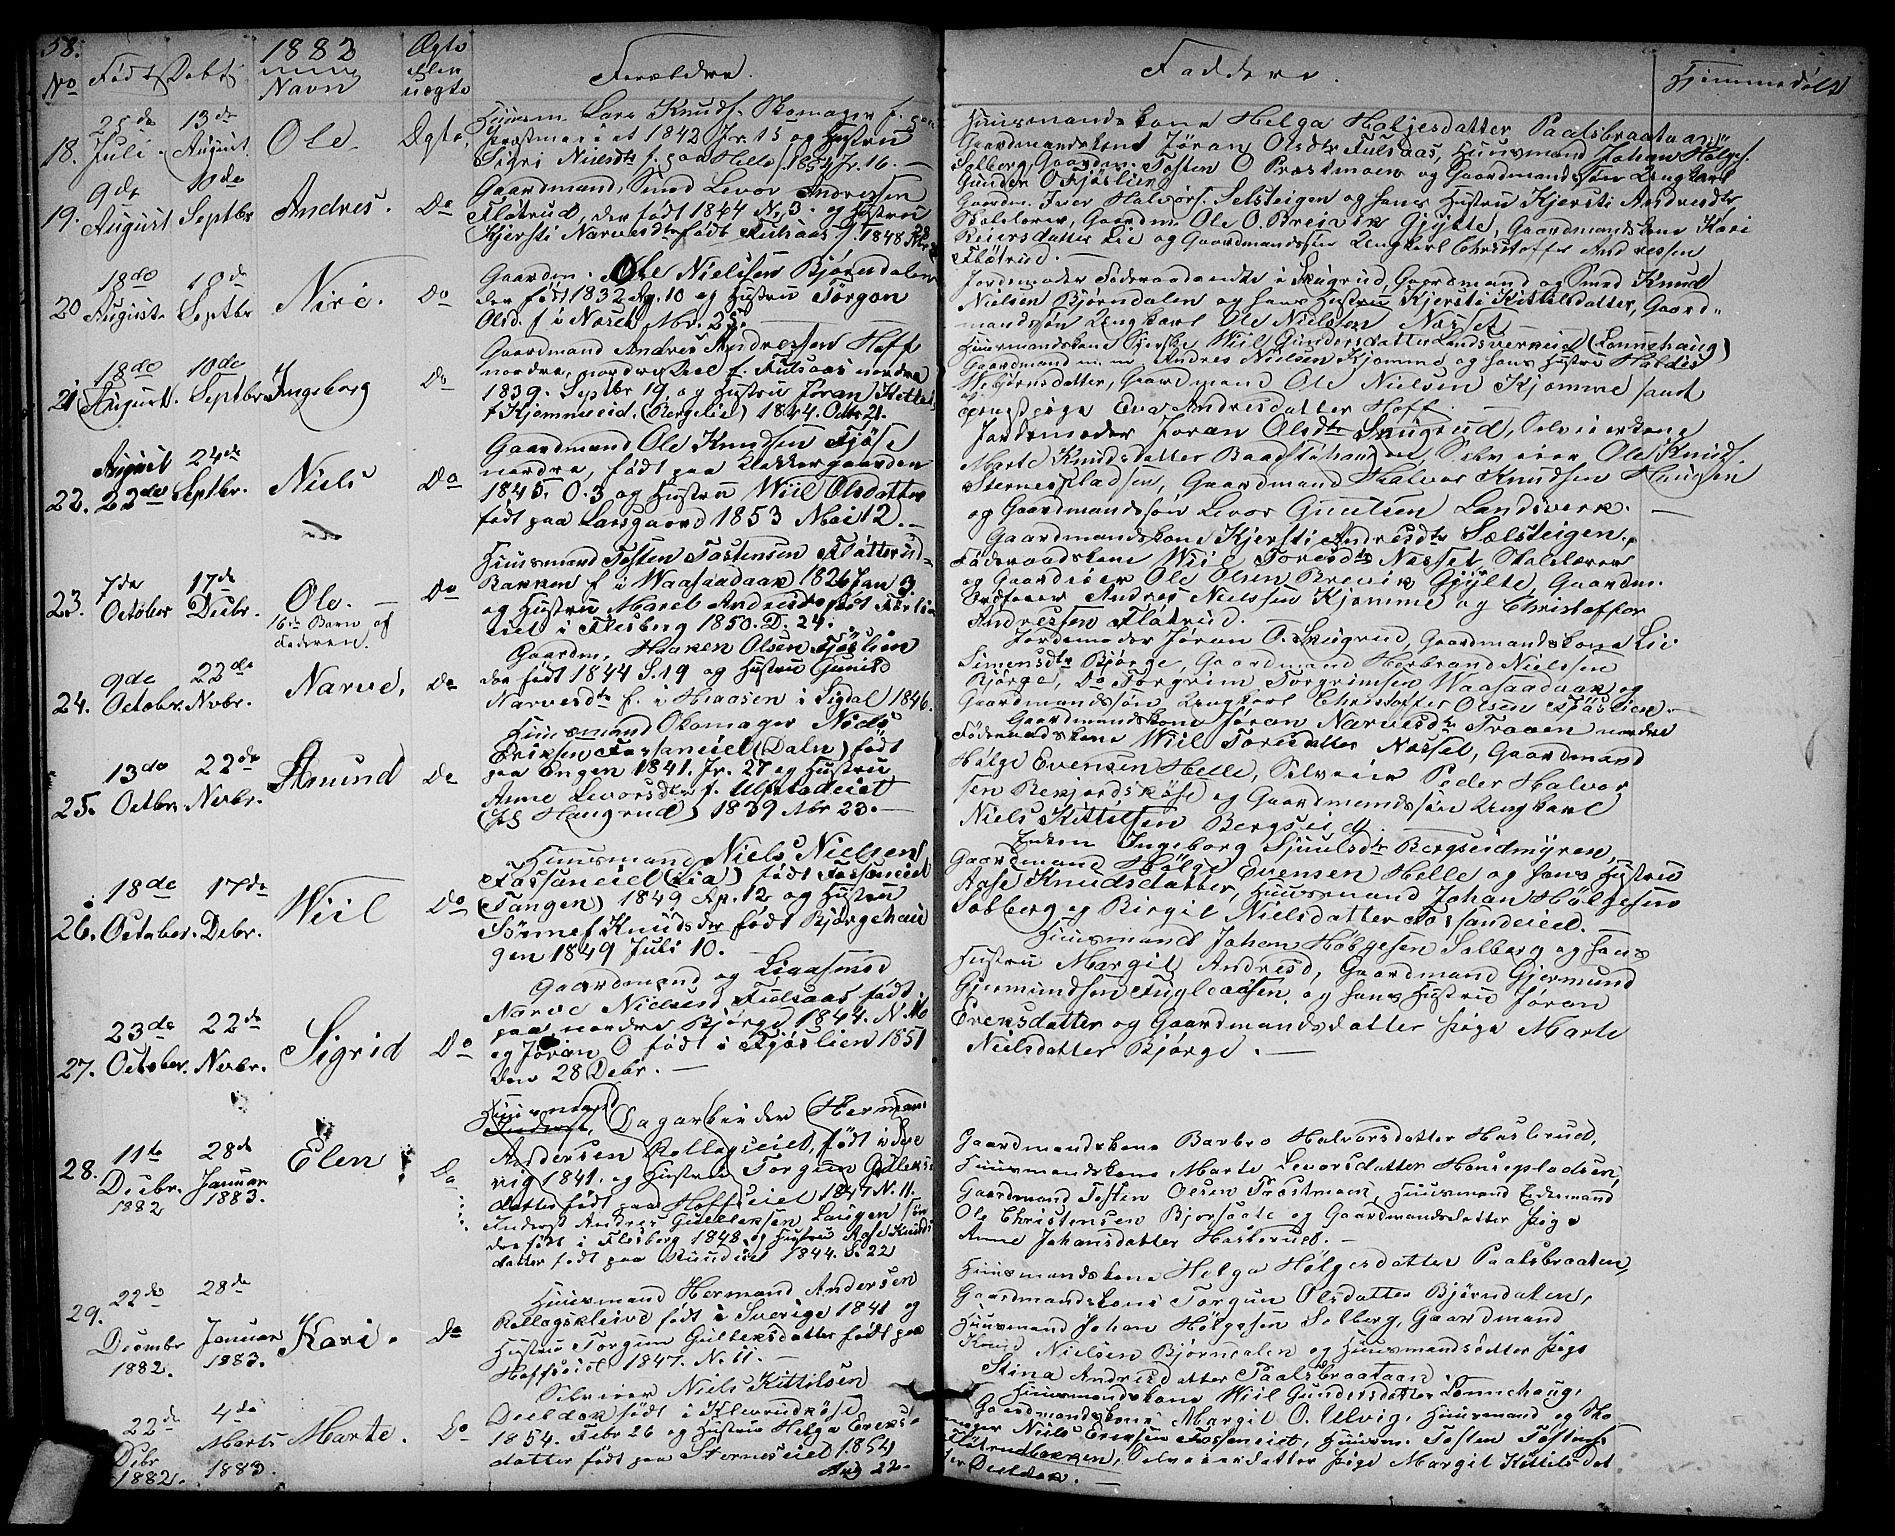 58.
1882
No Født Døbt Navn
Ægte eller uægte
Forældre.
Faddere.
Hjemmedøbt
18. Juli. 13de August Ole Ægte.
Huusm. Lars Knuds. Skomager f. paa
Præstmoeiet 1842 Jr. 15 og Hustru
Sigri Nielsdtr f. paa Helle 1854 Jr. 16. —
Huusmandskone Helga Holjesdatter Paalsbraataan,
Gaardmandskone Jøran Olsdtr Fulsaas, Huusmand Johan Holges.
Solberg, Gaardm. Tosten O Præstmoen og Gaardmandssøn Ungkarl
Gunder O Fjøslien
19. 9de August 10de Septbr Andres. Do
Gaardmand, Smed Levor Andressen
Fløtrud, der født 1844 N. 3. og Hustru
Kjersti Narvesdtr født Fulsaas 1848
Gaardm. Iver Halvors. Selsteigen og hans Hustru Kjersti Andresdtr
Skolelærer, Gaardm. Ole O. Breivik Gjylte, Gaardmandskone Kari
Reiersdatter Lie og Gaardmandssøn Ungkarl Christoffer Andressen
Fløtrud. —
20 18de August 10de Septbr Nire. Do
Gaardm. Ole Nielssen Bjørndalen
der født 1832 Ag. 10 og Hustru Torgon
Olsd. f i Næset Nbr. 25. —
Jordmoder Føderaadsenke i Skugrud, Gaardmand og Smed Knud
Nielsen Bjørndalen og hans Hustru Kjersti Kittelsdatter, Gaard-
mandssøn Ungkarl Ole Nielsen Næset. —
21 18de August. 10de Septbr Ingeborg Do
Gaardmand Andres Andressen Hoff
nordre, nordre Deel f. Fulsaas nordre
1839. Septbr 19 og Hustru Jøran Kittels
f Kjemmeeid. (Bergelie) 1844. Octbr 21.
Huusmandskone Wiil Gundersdatter Landsverkeid (Lønnehaug)
Gaardmand Andres Nielsen Kjomme og hans Hustru Haldis
Wibjørnsdatter, Gaardmand Ole Nielsen Kjomme samt
Pige Eva Andresdatter Hoff. —
22. August 22de 24de Septbr. Niels Do
Gaardmand Ole Knudsen Fjøse
nordre, født paa Klokkergaarden
1845. O. 3 og Hustru Wiil Olsdatter
født paa Larsgaard 1853 Mai 12. —
Jordemoder Jøran Olsdtr Skugrud, Selveierkone
Marte Knudsdatter Baastøhaugen, Selveier Ole Knuds.
Sternespladsen, Gaardmand Halvor Knudsen Haugen
og Gaardmandssøn Levor Guulsen Landsverk. —
23. 7de October 17de Decbr. Ole. — Do
16de Barn af
Faderen.
Huusmand Tosten Tostensen Fløtterud-
Bakken f. i Waasaadaak 1826 Jan 3.
og Hustru Marel Andresdtr født
eiet i Flesberg 1850. D. 24.
Gaardmandskone Kjersti Andresdtr Sælsteigen,
Føderaadskone Wiil Toresdtr Næsset, Skolelærer
og Gaardeier Ole Olsen Brevik Gjylte, Gaardm.
Andres Nielssen Kjomme og Christoffer
Andressen Fløtrud. —
24. 9de October. 22de Nvbr. Narve. Do
Gaardm. Haaken Olsen Fjøslien
der født 1844 S. 19 og Hustru Gunild
Narvesdtr f. i Hraasen i Sigdal 1846.
Jordemoder Jøran O. Skugrud, Gaardmandskone Lie
Simensdtr Bjørge, Gaardmand Herbrand Nielssen
Bjørge, Do Torgrim Torgrimsen Waasaadaak og
Gaardmandssøn Ungkarl Christoffer Olsen Fjøslien. —
25. 13de Octbr. 22de Nvbr. Amund Do
Huusmand Skomager Niels
Eriksen Fossaneiet (Daln) født
paa Engen 1841. Jr. 27 og Hustru
Anne Levorsdtr f. Ulfstadeiet
(paa Haugrud) 1839 Nbr 23. —
Gaardmandskone Jøran Narvesdtr Traaen nordre
Føderaadskone Wiil Toresdatter Næsset, Gaardmand
Holge Evensen Helle, Selveier Peder Halvor
sen og Gaardmandssøn Ungkarl
Niels Kittilsen Bergseid. —
26. 18de October. 17de Debr. Wiil Do
Huusmand Niels Nielsen
Fossaneiet (Lia) født Fossaneiet
(Tangen) 1849 Ap. 12 og Hustru
Sønnef Knudsdtr født Bjørgehau
gen 1849 Juli 10. —
Enken Ingeborg Sjuulsdtr Bergseidmyren,
Gaardmand Holge Evensen Helle og hans Hustru
Aase Knudsdatter, Huusmand Johan Holgesen
Solberg og Birgit Nielsdatter Fossandeiet. —
27. 23de October. 22de Nvbr. Sigrid Do
Gaardmand og Ligasmed
Narve Nielsen Fulsaas født
paa nordre Bjørge 1844. N. 16
og Jøran O født i Fjøslien 1851
den 28 Debr. —
Huusmand Johan Holgesen Solberg og hans
Hustru Margit Andresd, Gaardmand Gjermund
Gjermundsen Fugleaasen, og hans Hustru Jøran
Ereksdatter og Gaardmandsdatter Pige Marte
Nielsdatter Bjørge. —
28. 11te Decbr. 1882 28de Januar 1883. Elen Do
Huusmand
Inderst, Dagarbeider Herman
Andersen Rollagseiet, født i
1841. og Hustru Torgun Gulleks
datter født paa Hoffseiet 1847 N. 11.
Inderst Andres Gulleksen Laugen søn
dre født i Flesberg 1848 og Hustru Aase Knuds
datter født paa 1844. S. 22
Gaardmandskone Barbro Halvorsdatter Haslerud,
Huusmandskone Marte Levorsdatter Honsepladsen,
Gaardmand Tosten Olsen Præstmoen, Huusmand
Ole Christensen og Gaardmandsdatter Pige
Anne Johansdatter Haslerud. —
29. 22de Decembr 1882. 28de Januar 1883. Kari. Do
Huusmand Hermand Andersen
Rollagskleivé født i Sverige 1841 og
Hustru Torgun Gulleksdatter født paa
Hoffseiet 1847. N. 11. —
Huusmandskone Helga Holgersdatter Paalsbraaten,
Gaardmandskone Torgun Olsdatter Bjørndalen,
Huusmand Johan Holgesen Solberg, Gaardmand
Knud Nielsen Bjørndalen og Huusmandsdatter Pige
Stina Andresdatter Paalsbraataan.
22de Debr 1882. 4de Marts 1883. Marte. Do
Selveier Niels Kittilsen
Deeldok født i
1854. Febr 26 og Hustru Helga Ereks-
datter født paa Sterneseiet 1854
Aug 22.
Huusmandskone Wiil Gundersdatter Lønnehaug,
Gaardmandskone Margit O. Ulvig, Huusmand og Sko
mager Niels Ereksen Fossaneiet, Huusm. Tosten Tostens.
Fløtrudbakken, Selveierdatter Pige Margit Kittilsdat
ter Deeldok. —